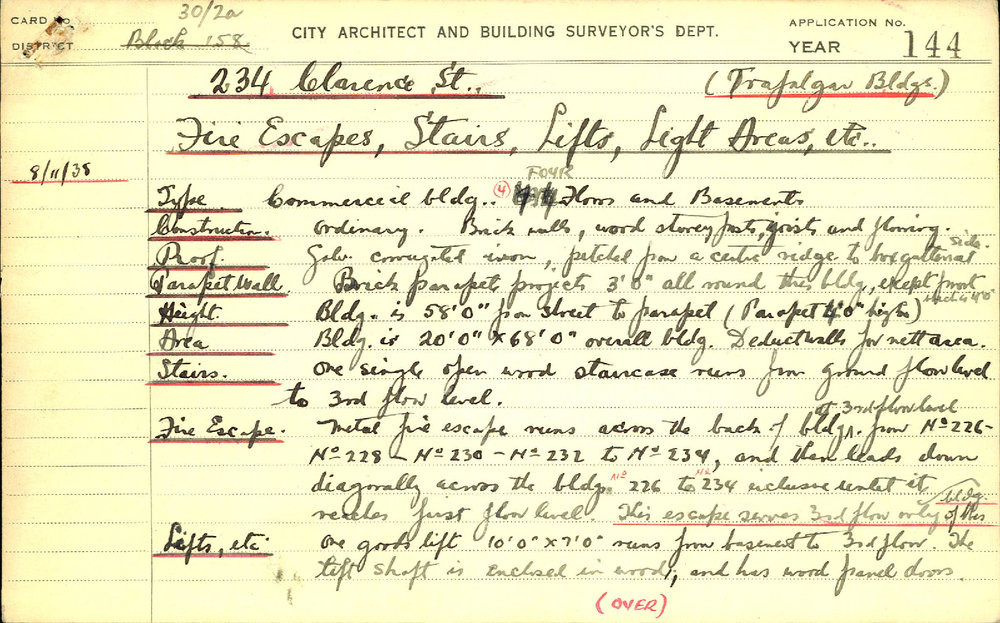 30/2a
CARD No.
DISTRICT Block 158
CITY ARCHITECT AND BUILDING SURVEYOR'S DEPT.
APPLICATION No.
YEAR 144
234 Clarence St.. (Trafalgar Bldgs.)
Fire Escapes, Stairs, Lifts, Light Areas, etc..
8/11/38
FOUR
Type Commercial bldg.. (4) Floors and Basements
Construction. Ordinary. Brick walls, wood storey posts, joists and flooring.
Roof. Galv. corrugated iron, pitched from a centre ridge to box gutter at side.
Parapet Wall. Brick parapet projects 3'0" all round this bldg, except front which is 4'0"
Height. Bldg. is 58'0" from street to parapet (Parapet 4'0" high)
Area Bldg. is 20'0" x 68'0" overall bldg. Deduct walls for nett area.
Stairs. One single open wood staircase runs from ground floor level
to 3rd floor level.
Fire Escape. Metal fire escape runs across the back of bldg. at 3rd floor level from No 226-
No 228 - No 230 - No 232 to No 234, and then leads down
diagonally across the bldg. No 226 to No 234 inclusive until it
reaches first floor level. This escape serves 3rd floor only of this bldg.
Lifts, etc One goods lift 10'0" x 7'0" runs from basement to 3rd floor. The
lift shaft is enclosed in wood, and has wood panel doors.
(OVER)